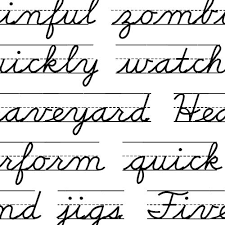 inful zomb
uickly watch
aveyard Hea
rform quick
nd jigs Five